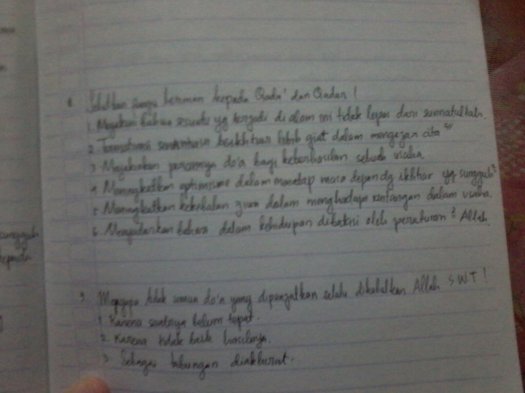 8. Sebutkan fungsi beriman kepada Qada' dan Qadar !
1. Meyakini bahwa sesuatu yg terjadi di alam ini tidak lepas dari sunnatullah.
2. senantiasa berikhtiar lebih giat dalam mengejar cita²
3. Meyakinkan perannya do'a bagi keberhasilan sebuah usaha.
4. Meningkatkan optimisme dalam menatap masa depan dg ikhtiar yg sungguh²
5. Meningkatkan kekebalan jiwa dalam menghadapi rintangan dalam usaha.
6. Menyadarkan bahwa dalam kehidupan dibatasi oleh peraturan² Allah
9. Mengapa tidak semua do'a yang dipanjatkan selalu dikabulkan Allah SWT !
1. Karena saatnya belum tepat.
2. Karena tidak baik hasilnya.
3. Sebagai tabungan diakhirat.
sungguh